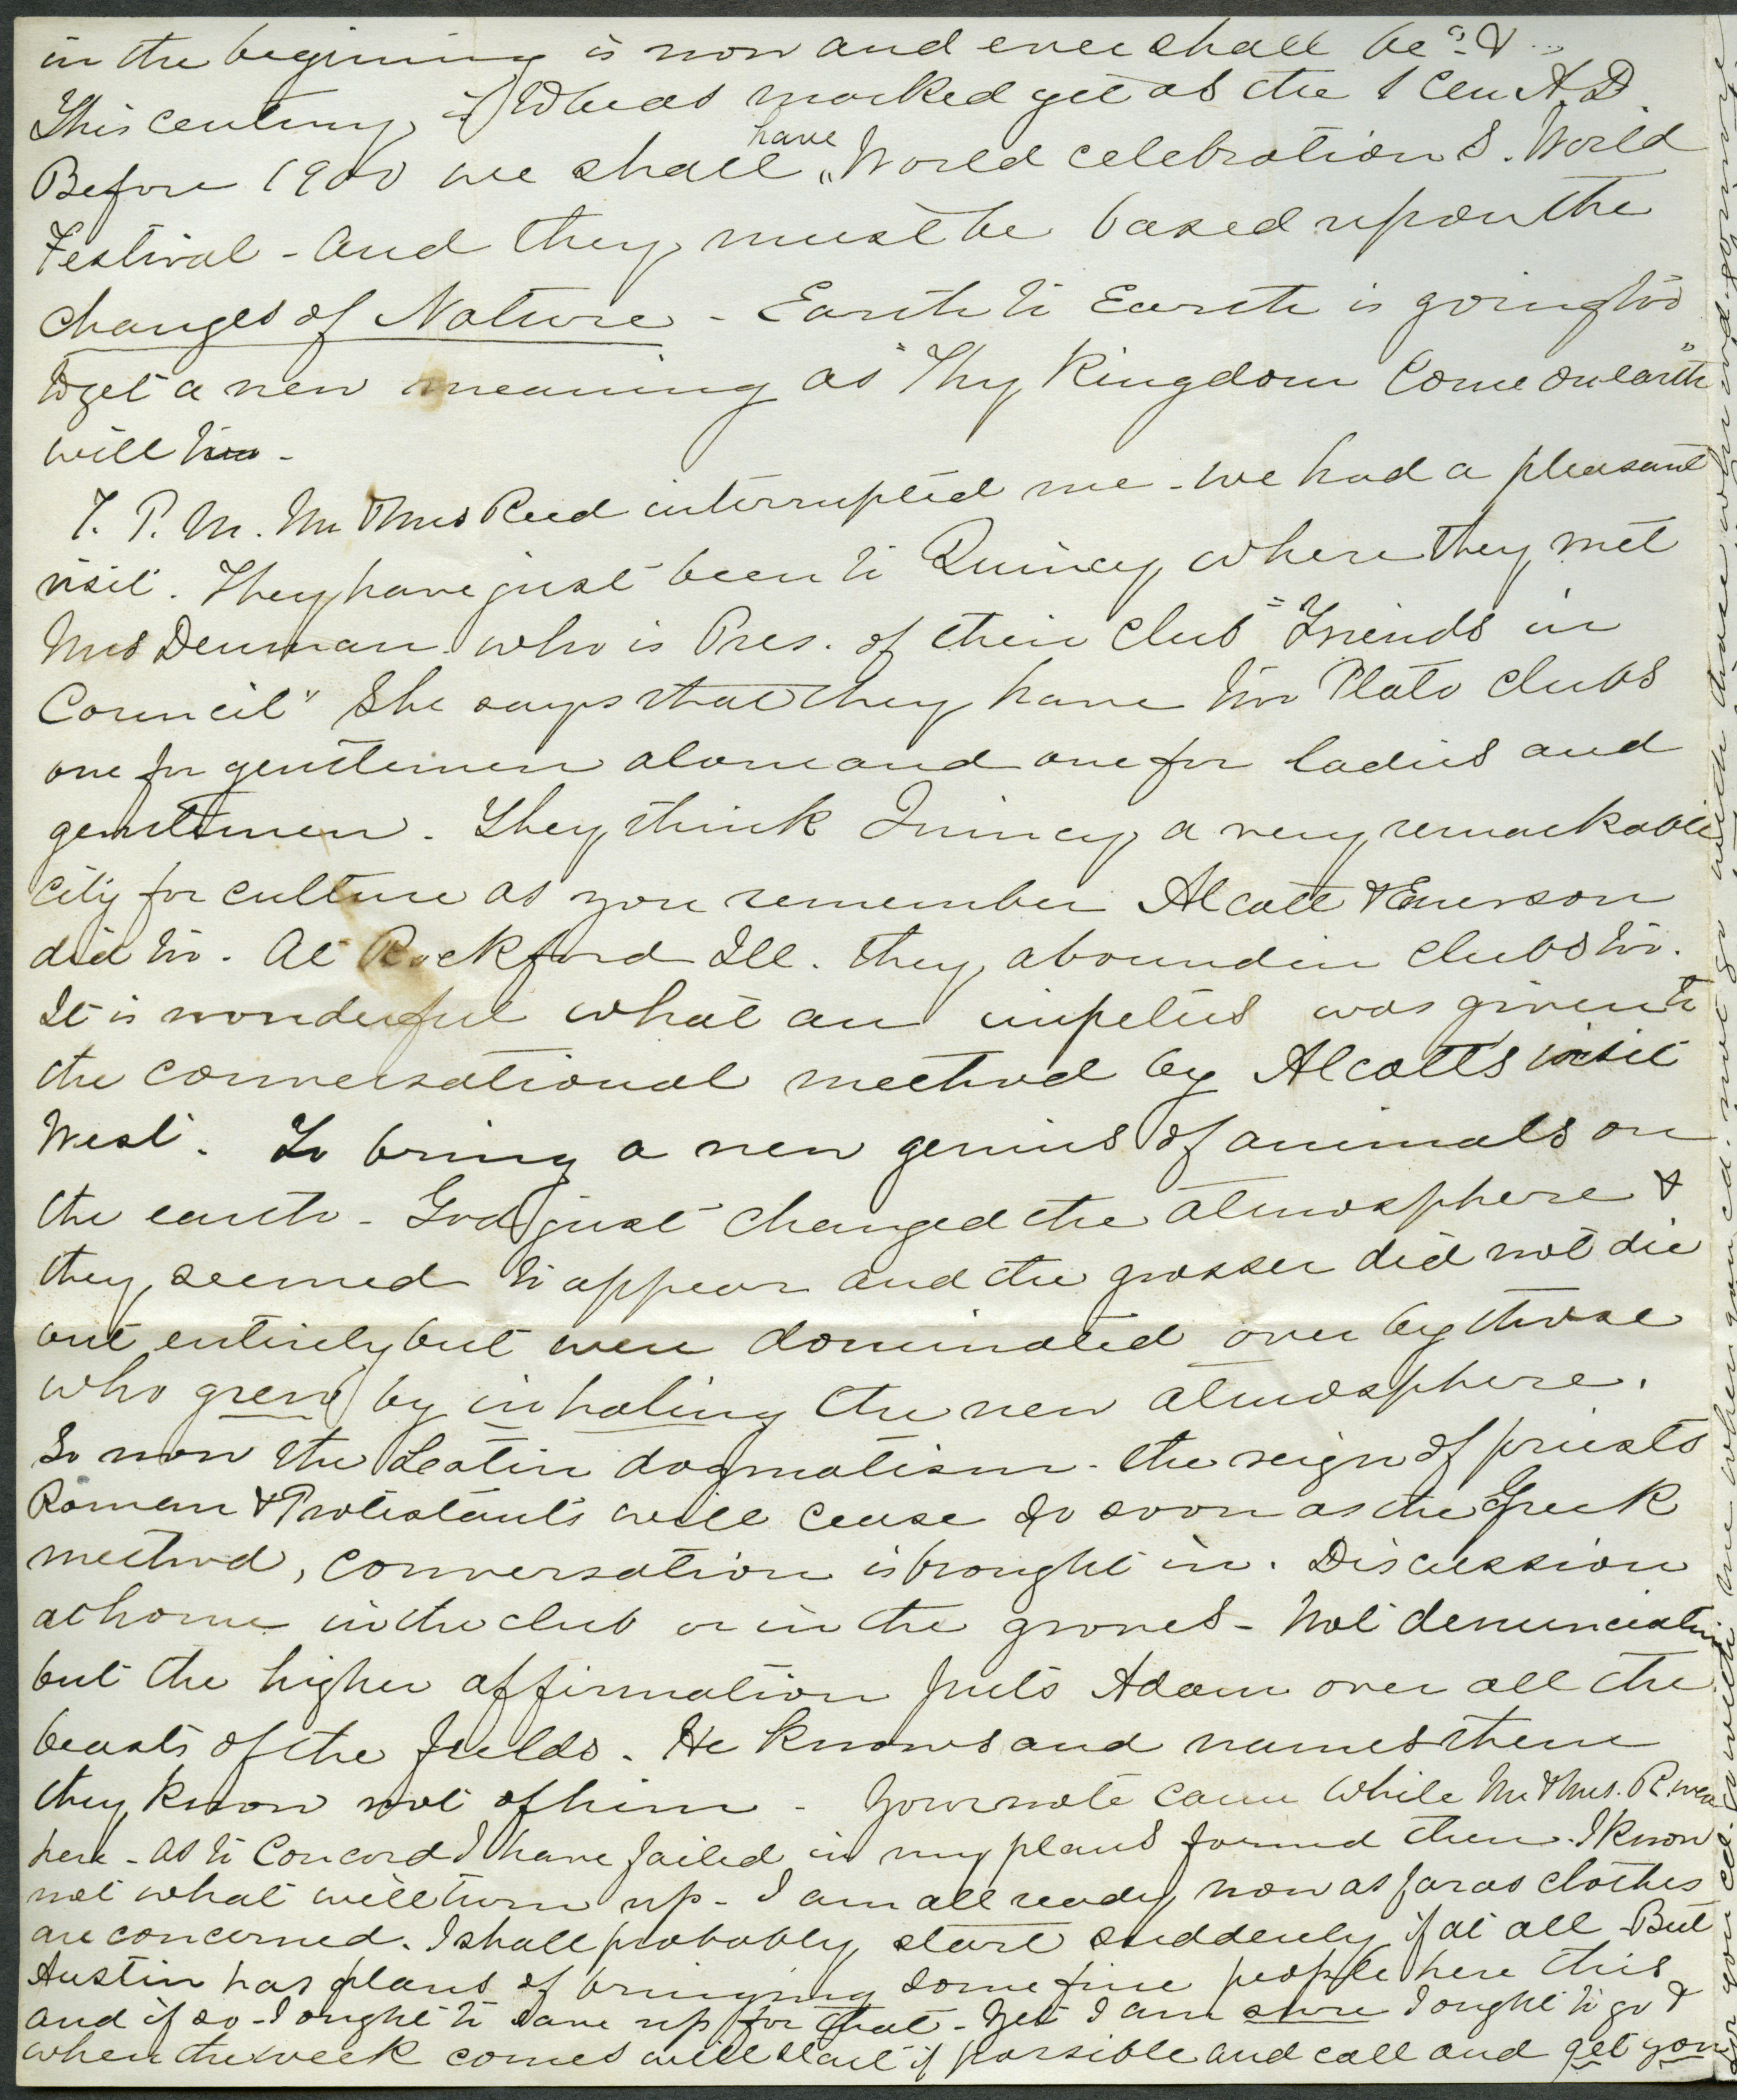 in the beginning is now and ever shall be" &
This century, is to be as marked yet as the 1 Cen A.D.
Before 1900 we shall have "World celebrations. World
Festival - And they must be based upon the
changes of Nature - Earth to Earth is going too
to get a new meaning as "Thy Kingdom Come on earth"
will too -
7. P. M. Mr & Mrs Reed interrupted me - we had a pleasant
visit. They have just been to Quincy where they met
Mrs Denman who is Pres. of their club "Friends in
Council" She says that they have two Plato clubs
one for gentlemen alone and one for ladies and
gentlemen. They think Quincy a very remarkable
city for culture as you remember Alcott & Emerson
did too. At Rockford Ill. they abound in clubs too.
It is wonderful what an impetus was given to
the conversational method by Alcotts visit
West. To bring a new genius of animals on
the earth - God just changed the atmosphere &
they seemed to appear and the grosser did not die
out entirely but were dominated over by those
who grew by inhaling the new atmosphere.
So now the Latin dogmatism - the reign of priests
Roman & Protestants will cease so soon as the Greek
method, conversation is brought in. Discussion
at home in the club or in the groves - Not denunciation
but the higher affirmation puts Adam over all the
beasts of the fields. He knows and names them
they know not of him - Your note came while Mr & Mrs. R. were
here - As to Concord I have failed in my plans formed then. I know
not what will turn up - I am all ready now as far as clothes
are concerned. I shall probably start suddenly if at all - But
Austin has plans of bringing some fine people here this
and if so - I ought to save up for that - Yet I am sure I ought to go &
when the week comes will start if possible and call and get you